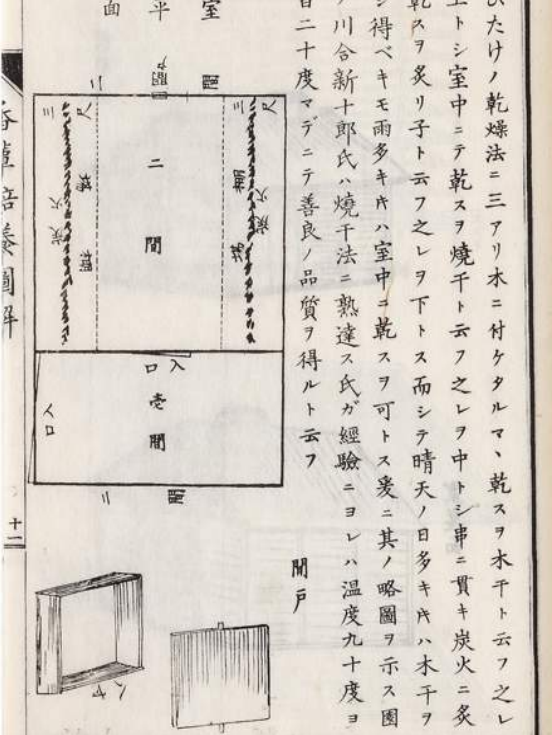 たけノ乾燥法ニ三アリ木ニ付ケタルマヽ乾スヲ木干ト云フ之レ
上トシ室中ニテ乾スヲ燒干ト云フ之レヲ中トシ串ニ貫キ炭火ニ炙
乾スヲ炙リ子ト云フ之レヲ下トス而シテ晴天ノ日多キ片ハ木干ヲ
得ベキモ雨多キ片ハ室中ニ乾スヲ可トス爰ニ其ノ略圖ヲ示ス圖
川合新十郎氏ハ燒干法ニ熟達ス氏ガ經驗ニヨレハ溫度九十度ヨ
百二十度マデニテ善良ノ品質ヲ得ルト云フ
開戸
室
平
面
二間
二間
三尺
炭火
三尺
炭火
二間
入口
壱間
入口
二間
香蕈培養圖解
十一